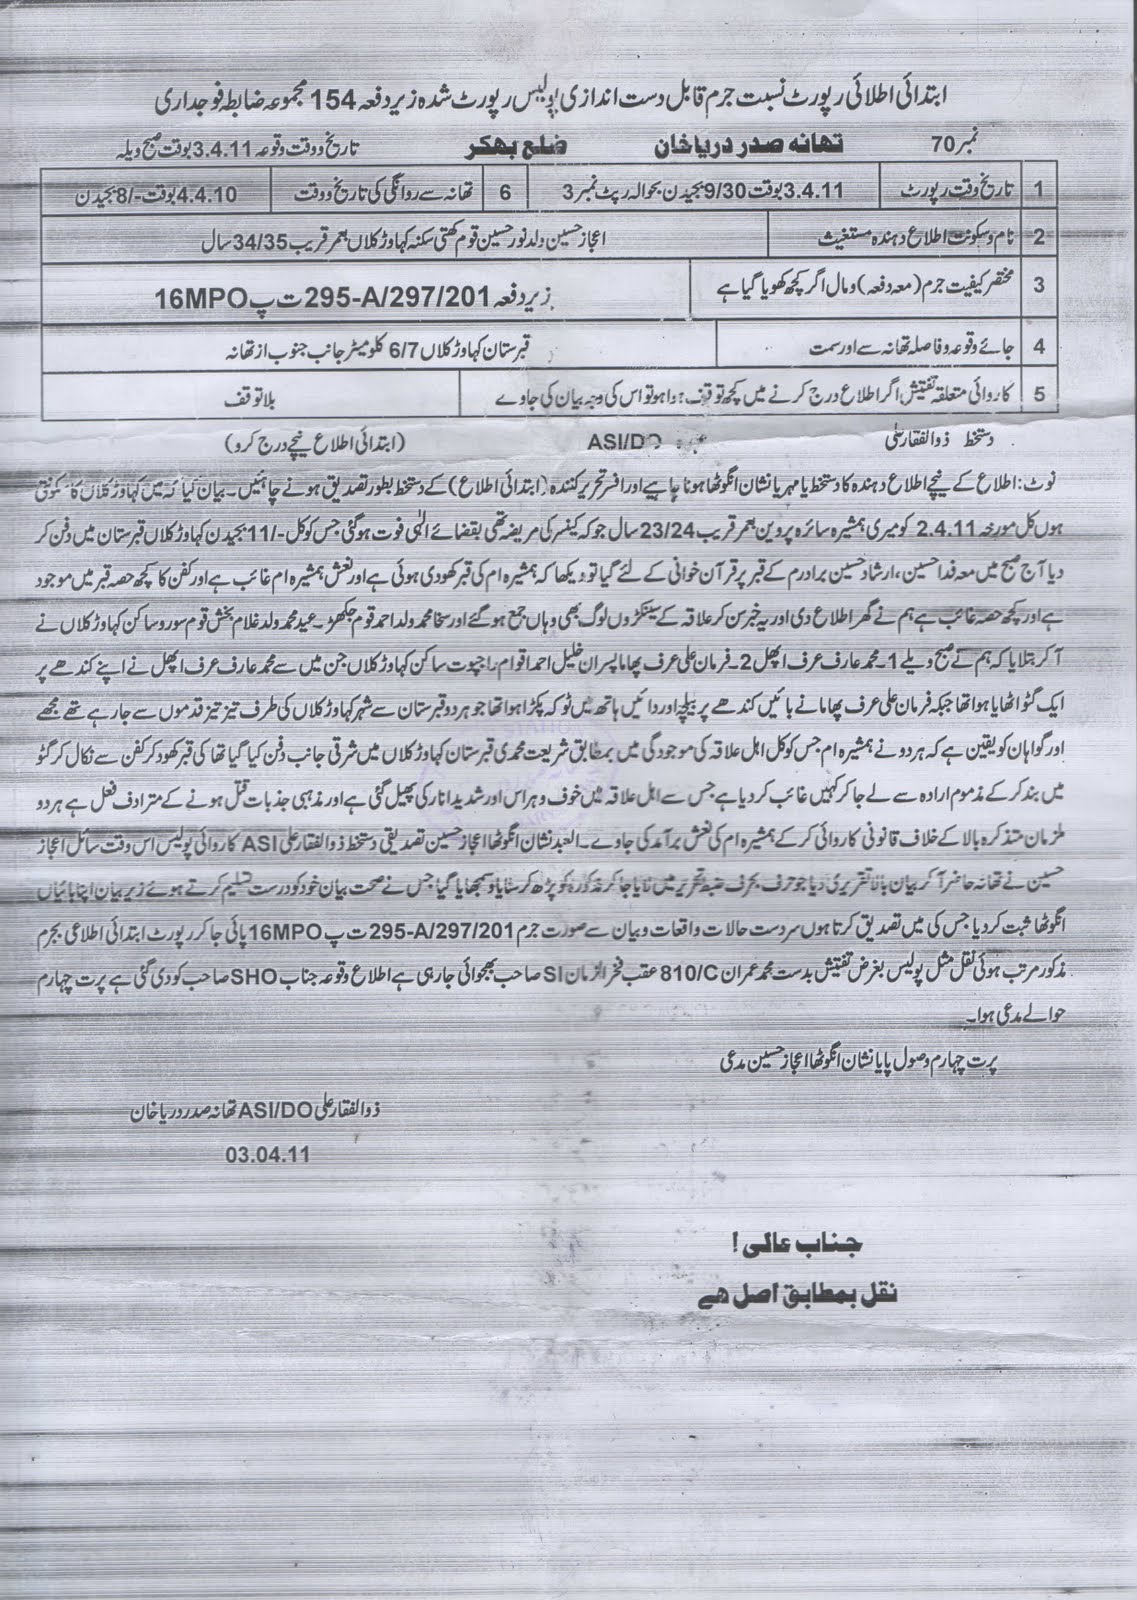 ابتدائی اطلائی رپورٹ نسبت جرم قابل دست اندازی پولیس رپورٹ شدہ زیر دفعہ 154 مجموعہ ضابطہ فوجداری
نمبر 70 تھانہ صدر دریاخان ضلع بھکر تاریخ و وقت وقوعہ 3.4.11 بوقت صبح ویلہ
1 تاریخ وقت رپورٹ 3.4.11 بوقت 9/30 بجیدن بحوالہ رپٹ نمبر 3 6 تھانہ سے روانگی کی تاریخ و وقت 4.4.10 بوقت -/8 بجیدن
2 نام و سکونت اطلاع دہندہ مستغیث اعجاز حسین ولد نور حسین قوم کھتی سکنہ کہاوڑ کلاں بعمر قریب 34/35 سال
3 مختصر کیفیت جرم (معہ دفعہ) و مال اگر کچھ کھویا گیا ہے زیر دفعہ 295-A/297/201 ت پ 16MPO
4 جائے وقوعہ و فاصلہ تھانہ سے اور سمت قبرستان کہاوڑ کلاں 6/7 کلومیٹر جانب جنوب از تھانہ
5 کاروائی متعلقہ تفتیش اگر اطلاع درج کرنے میں کچھ توقف ہوا ہو تو اس کی وجہ بیان کی جاوے بلا توقف
دستخط ذوالفقار علی ASI/DO (ابتدائی اطلاع نیچے درج کرو)
نوٹ: اطلاع کے نیچے اطلاع دہندہ کا دستخط یا مہر یا نشان انگوٹھا ہونا چاہیے اور افسر تحریر کنندہ (ابتدائی اطلاع) کے دستخط بطور تصدیق ہونے چاہئیں۔ بیان کیا کہ میں کہاوڑ کلاں کا سکونتی
ہوں کل مورخہ 2.4.11 کو میری ہمشیرہ سائرہ پروین بعمر قریب 23/24 سال جو کہ کینسر کی مریضہ تھی بقضائے الٰہی فوت ہوگئی جس کو کل -/11 بجیدن کہاوڑ کلاں قبرستان میں دفن کر
دیا آج صبح میں معہ فدا حسین، ارشاد حسین برادرم کے قبر پر قرآن خوانی کے لئے گیا تو دیکھا کہ ہمشیرہ ام کی قبر کھودی ہوئی ہے اور نعش ہمشیرہ ام غائب ہے اور کفن کا کچھ حصہ قبر میں موجود
ہے اور کچھ حصہ غائب ہے ہم نے گھر اطلاع دی اور یہ خبر سن کر علاقہ کے سینکڑوں لوگ بھی وہاں جمع ہوگئے اور سخا محمد ولد احمد قوم جکھڑ۔ عید محمد ولد غلام بخش قوم سورو ساکن کہاوڑ کلاں نے
آ کر بتلایا کہ ہم نے صبح ویلے 1۔ محمد عارف عرف اچھل 2۔ فرمان علی عرف پھاما پسران خلیل احمد اقوام راجپوت ساکن کہاوڑ کلاں جن میں سے محمد عارف عرف اچھل نے اپنے کندھے پر
ایک گٹو اٹھایا ہوا تھا جبکہ فرمان علی عرف پھاما نے بائیں کندھے پر بیلچہ اور دائیں ہاتھ میں ٹوکہ پکڑا ہوا تھا جو ہر دو قبرستان سے شہر کہاوڑ کلاں کی طرف تیز تیز قدموں سے جا رہے تھے مجھے
اور گواہان کو یقین ہے کہ ہر دو نے ہمشیرہ ام جس کو کل اہل علاقہ کی موجودگی میں بمطابق شریعت محمدی قبرستان کہاوڑ کلاں میں شرقی جانب دفن کیا گیا تھا کی قبر کھود کر کفن سے نکال کر گٹو
میں بند کر کے مذموم ارادہ سے لے جا کر کہیں غائب کر دیا ہے جس سے اہل علاقہ میں خوف و ہراس اور شدید انار کی پھیل گئی ہے اور مذہبی جذبات قتل ہونے کے مترادف فعل ہے ہر دو
ملزمان متذکرہ بالا کے خلاف قانونی کاروائی کر کے ہمشیرہ ام کی نعش برآمد کی جاوے۔ العبد نشان انگوٹھا اعجاز حسین تصدیقی دستخط ذوالفقار علی ASI کاروائی پولیس اس وقت سائل اعجاز
حسین نے تھانہ حاضر آ کر بیان بالا تقریری دیا جو حرف بحرف ضبط تحریر میں لایا جا کر مذکورہ کو پڑھ کر سنایا و سمجھایا گیا جس نے صحت بیان خود کو درست تسلیم کرتے ہوئے زیر بیان اپنا بائیاں
انگوٹھا ثبت کر دیا جس کی میں تصدیق کرتا ہوں سر دست حالات واقعات و بیان سے صورت جرم 295-A/297/201 ت پ 16MPO پائی جا کر رپورٹ ابتدائی اطلاعی بجرم
مذکور مرتب ہوئی نقل مثل پولیس بغرض تفتیش بدست محمد عمران 810/C عقب فخر الزمان SI صاحب بھجوائی جا رہی ہے اطلاع وقوعہ جناب SHO صاحب کو دی گئی ہے پرت چہارم
حوالے مدعی ہوا۔
پرت چہارم وصول پایا نشان انگوٹھا اعجاز حسین مدعی
ذوالفقار علی ASI/DO تھانہ صدر دریا خان
03.04.11
جناب عالی !
نقل بمطابق اصل ھے